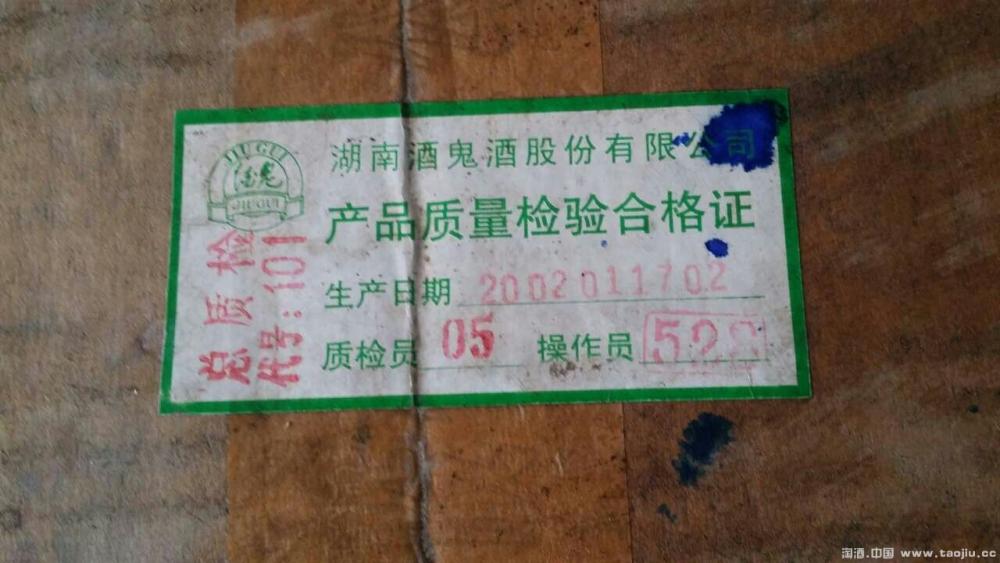 湖南酒鬼酒股份有限公司
JIUGUI
酒鬼
JIUGUI
产品质量检验合格证
生产日期 2002011702
质检员 05 操作员
总质检
代号:101
淘酒.中国 www.taojiu.cc